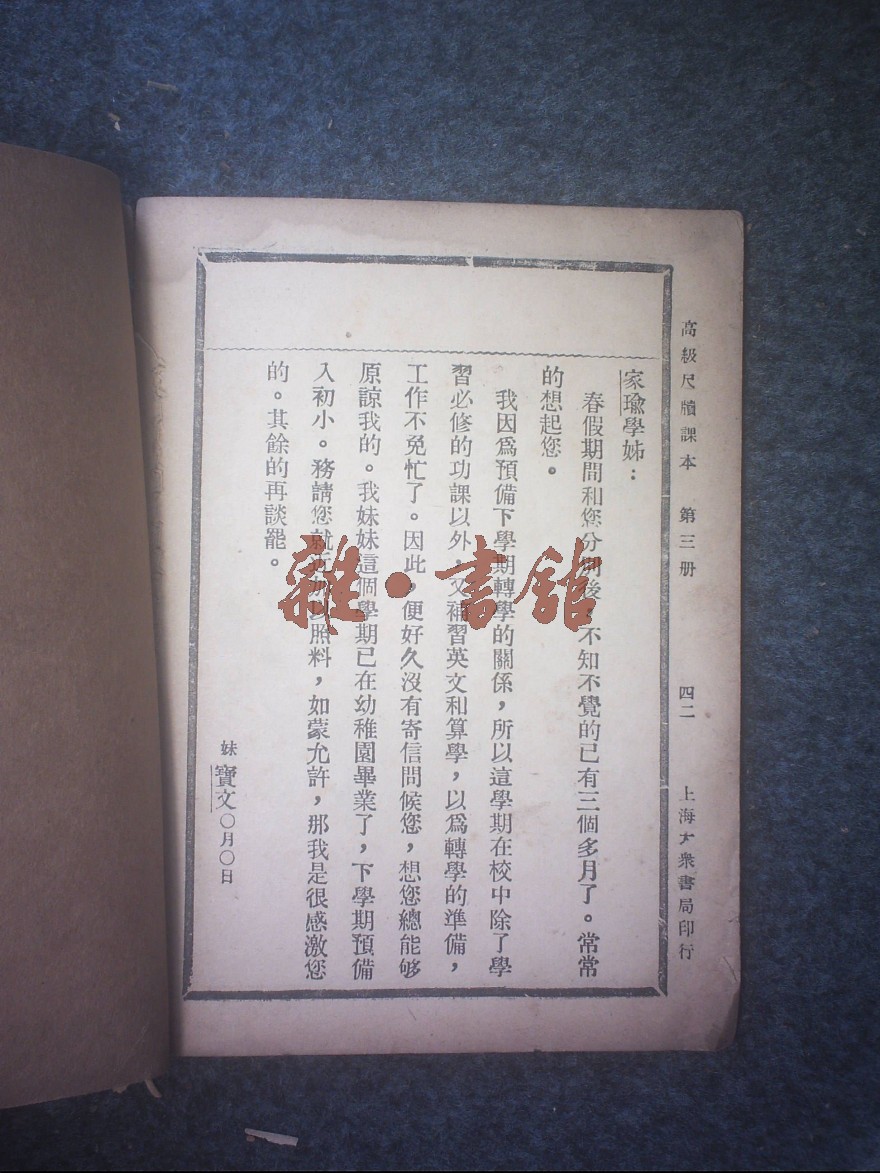 高級尺牘課本　第三册　四二　上海大衆書局印行
家瑜學姊：
春假期間和您分別後，不知不覺的已有三個多月了。常常
的想起您。
我因爲預備下學期轉學的關係，所以這學期在校中除了學
習必修的功課以外，又補習英文和算學，以爲轉學的準備，
工作不免忙了。因此，便好久沒有寄信問候您，想您總能够
原諒我的。我妹妹這個學期已在幼稚園畢業了，下學期預備
入初小。務請您就近加以照料，如蒙允許，那我是很感激您
的。其餘的再談罷。
妹寶文〇月〇日
雜·書館